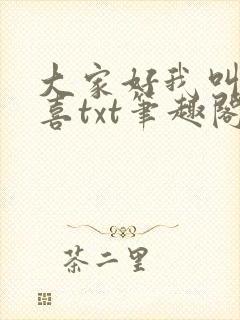 大家好我叫
喜txt筆趣閣
茶二里